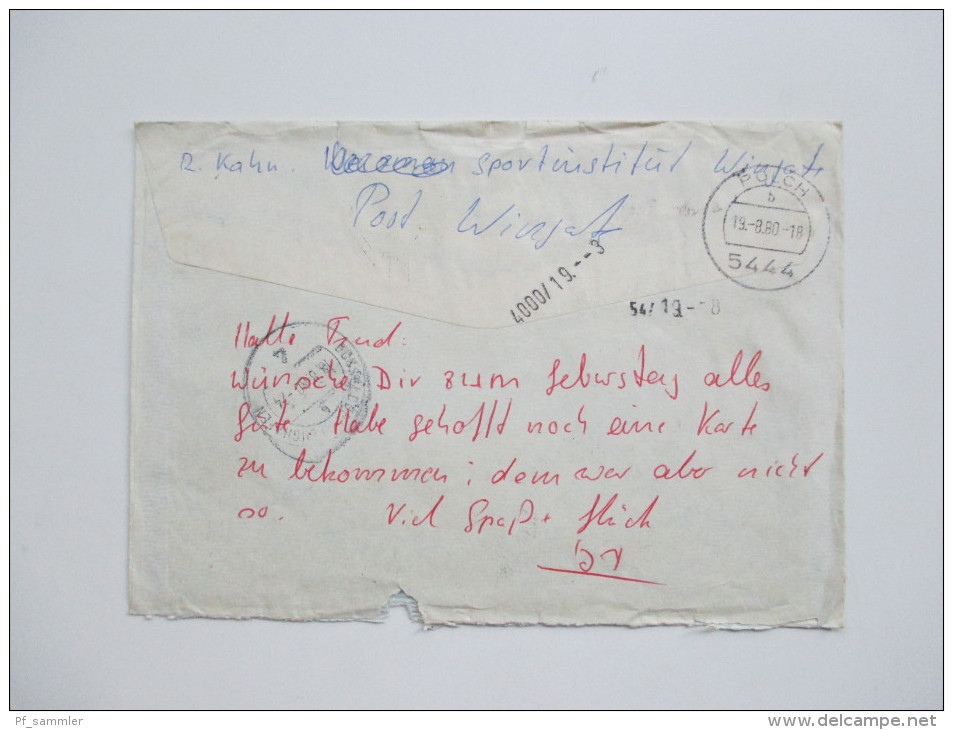 R. Kahn. Sportinstitut Wingate
Post. Wingate
POLCH
b
19.-8.80-18
5444
4000/19.--3
54/19.--8
Hallo
Wünsche Dir zum Geburstag alles
Gute Habe gehofft noch eine Karte
zu bekommen; dem war aber nicht
so. Viel Spaß + Glück
Pf_sammler
www.delcampe.net